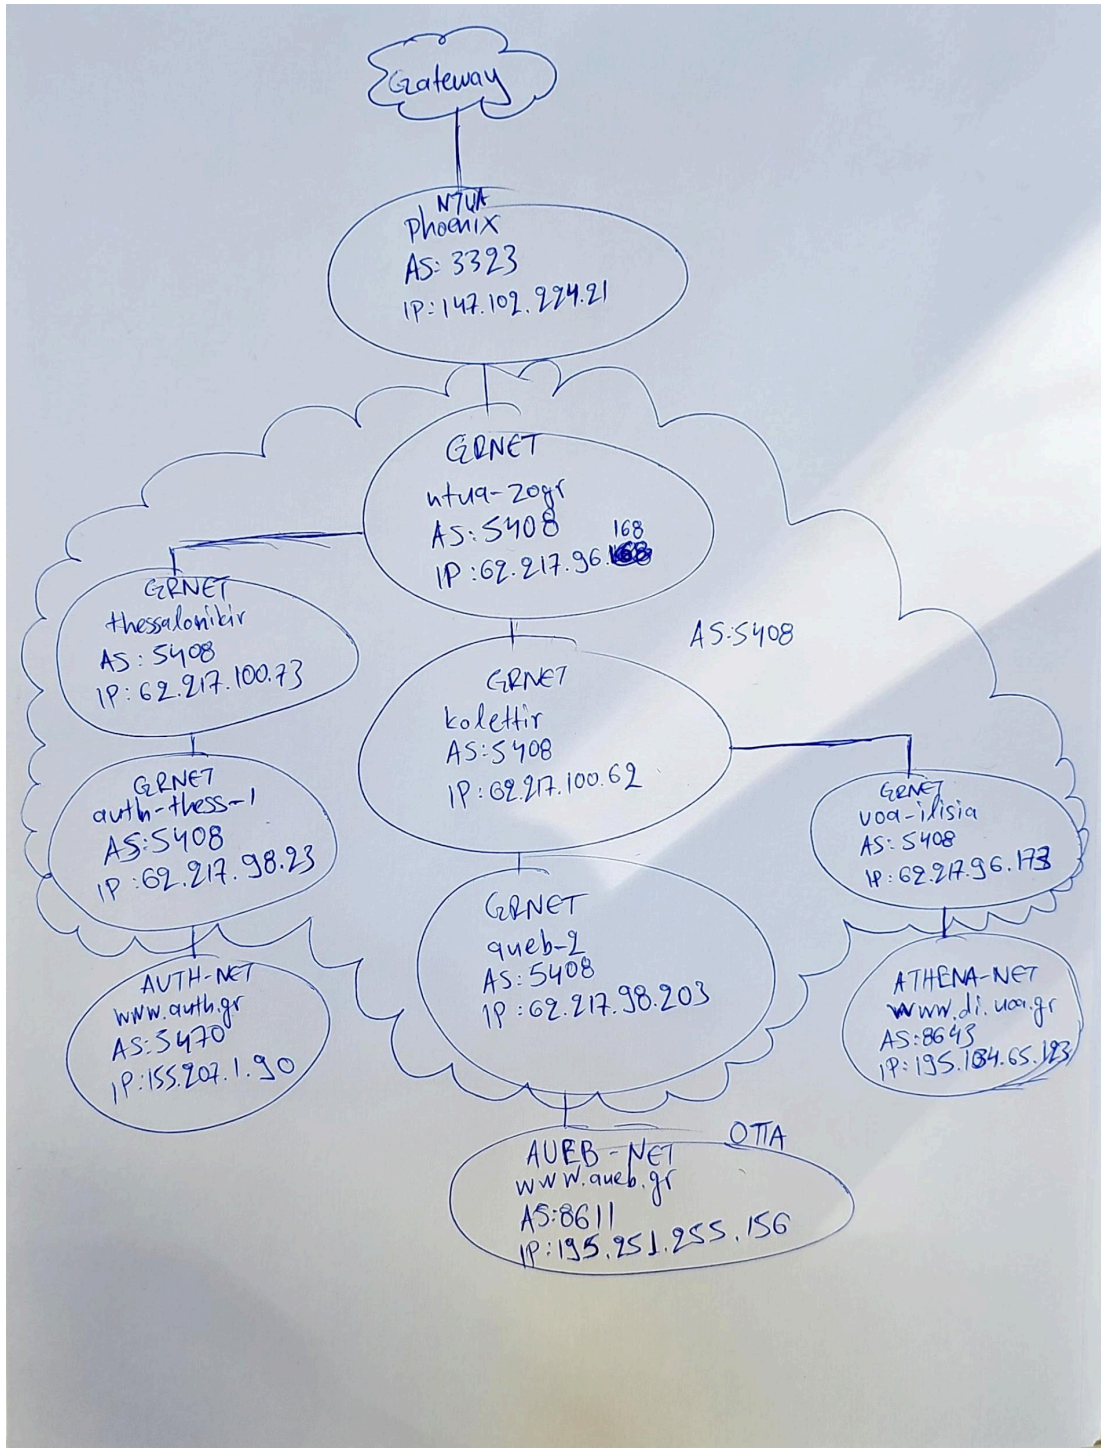 Gateway
NTUA
Phoenix
AS: 3323
IP: 147.102.224.21
GRNET
ntua-zogr
AS: 5408
168
IP: 62.217.96.
GRNET
thessalonikir
AS: 5408
IP: 62.217.100.73
AS:5408
GRNET
kolettir
AS: 5408
IP: 62.217.100.62
GRNET
auth-thess-1
AS: 5408
IP: 62.217.98.23
GRNET
uoa-ilisia
AS: 5408
IP: 62.217.96.173
GRNET
aueb-2
AS: 5408
IP: 62.217.98.203
AUTH-NET
www.auth.gr
AS: 5470
IP: 155.207.1.90
ATHENA-NET
www.di.uoa.gr
AS: 8643
IP: 195.134.65.123
ΟΠΑ
AUEB-NET
www.aueb.gr
AS: 8611
IP: 195.251.255.156